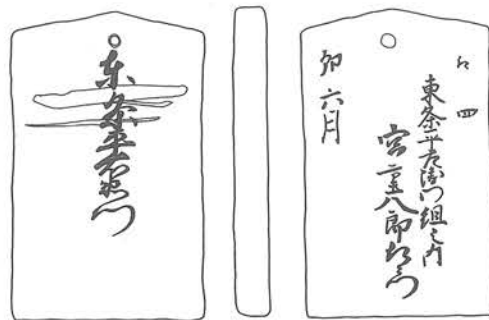 東条平左衛門
四
東条平左衛門組之内
宮重八郎左衛門
卯六月